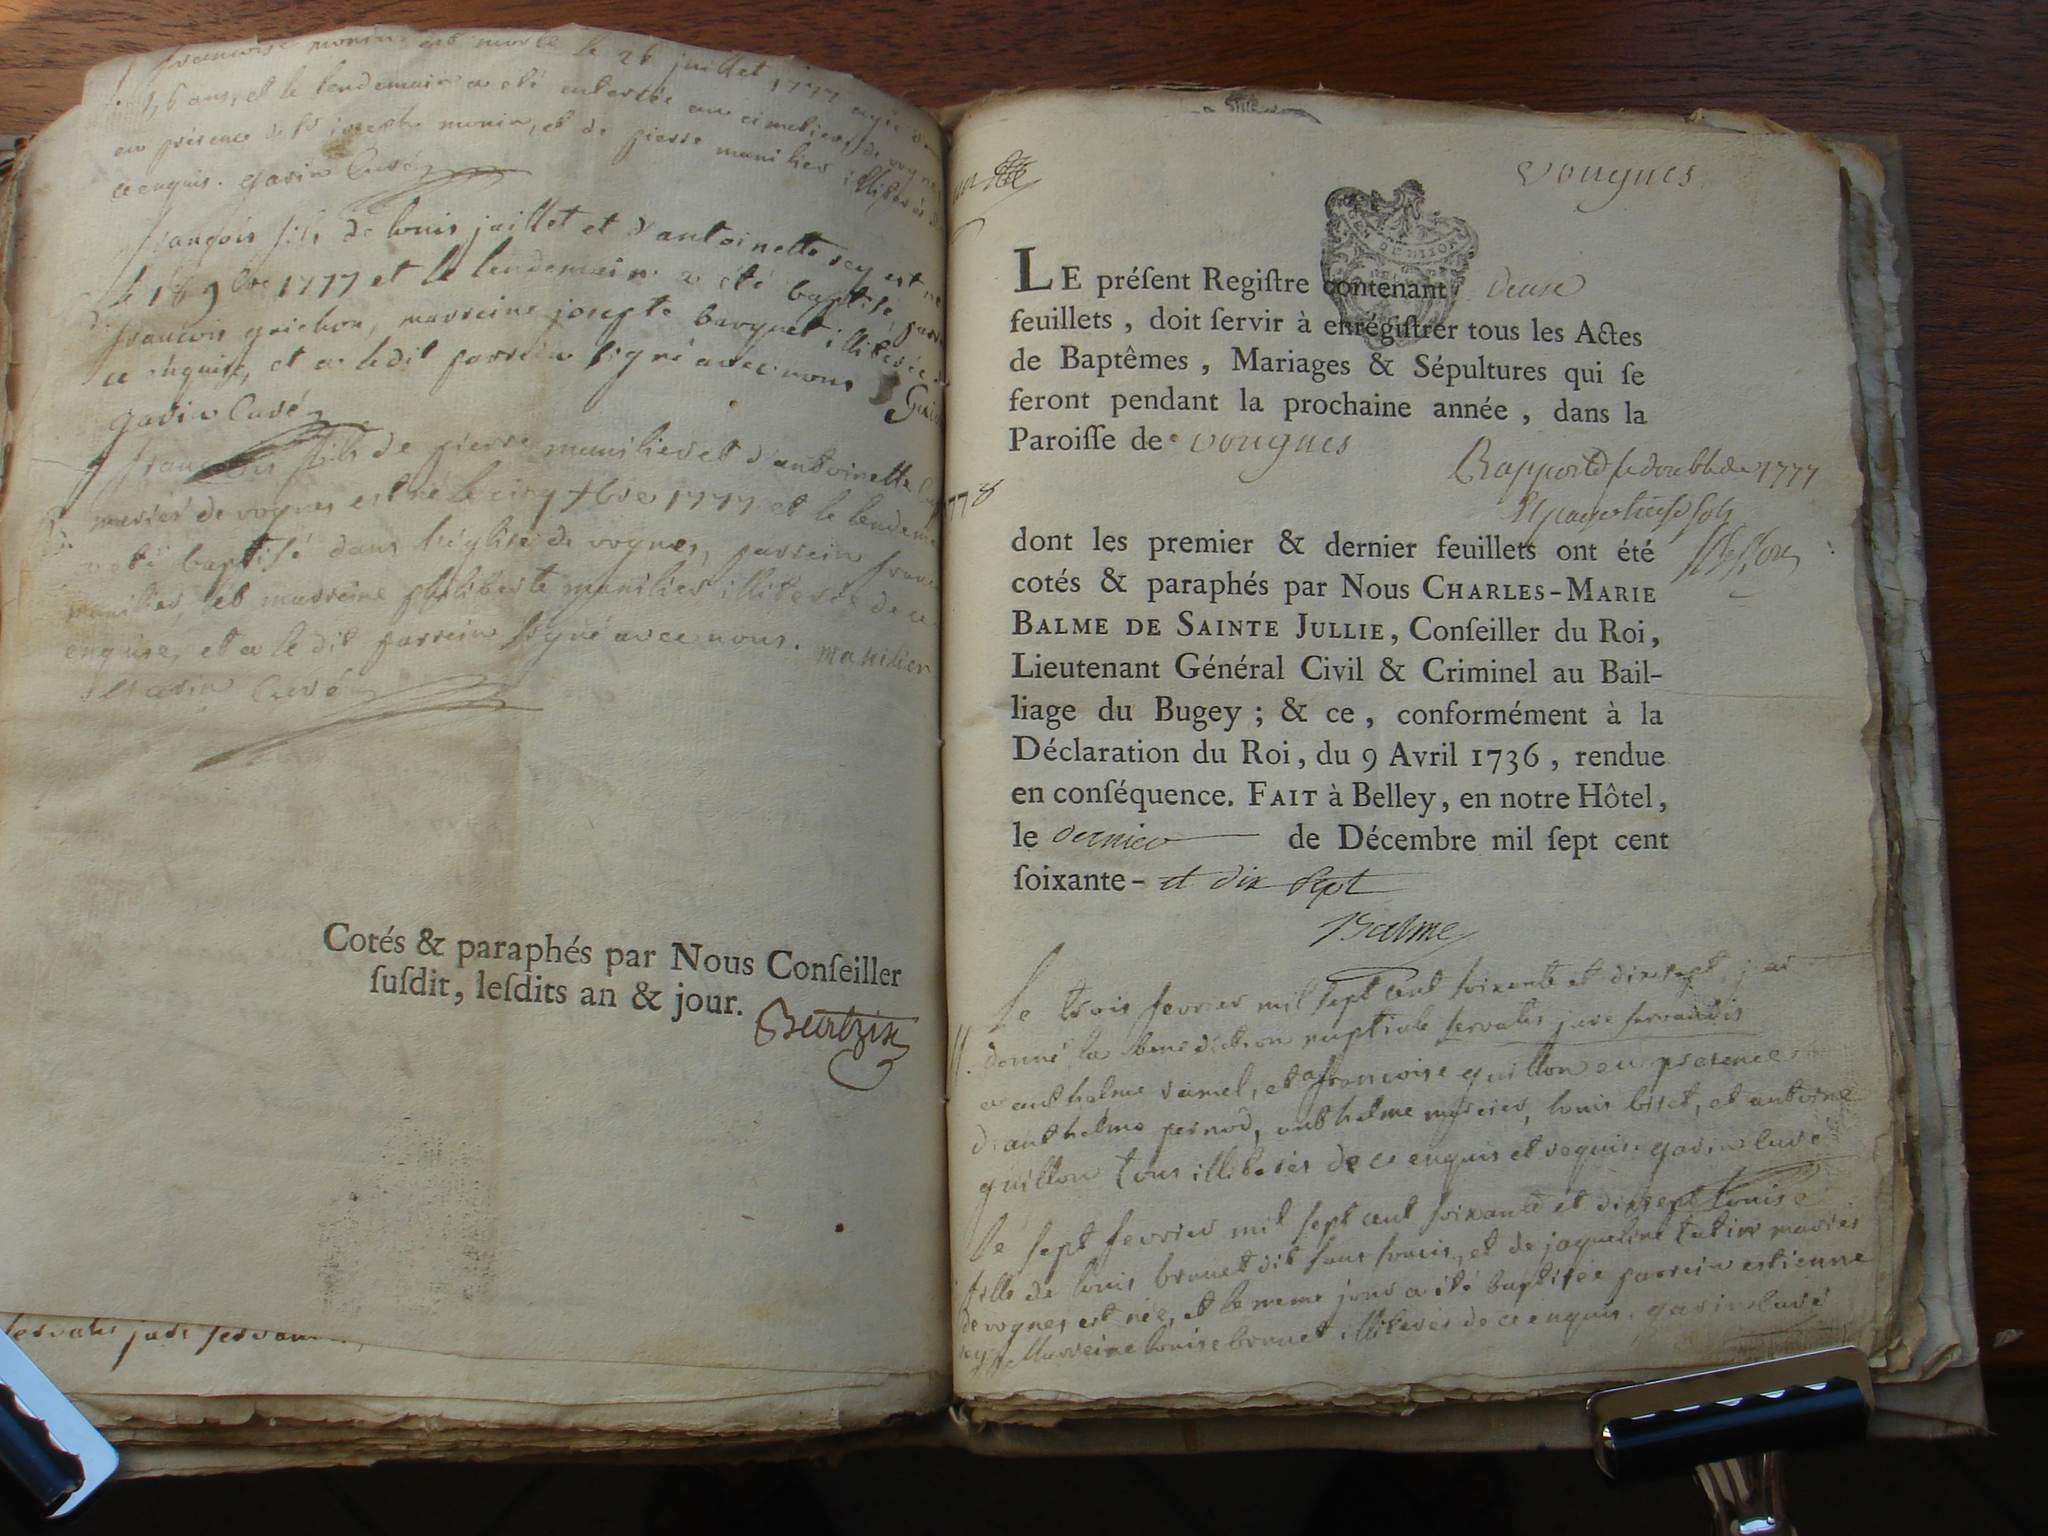 françoise monin est morte le 26 juillet 1777 agée d'env
6 ans, et le lendemain a eté enterrée au cimetiere de vognes
en présence de Sr joseph monin, et de pierre manilier illiterés de
ce enquis. gavin Curé
françois fils de louis juillet et d'antoinette rey est né
le 18 9bre 1777 et le lendemain a été baptisé parr
françois guichon, marreine josepte barquet illiterée de
ce enquise, et a ledit parrein signé avec nous Guic
gavin Curé
françois fils de pierre manilier et d'antoinette
mariés de vognes est né le cinq xbre 1777 et le lendem
a eté baptisé dans l'église de vognes, parrein franc
manilier, et marreine philiberte manilier illiterée de ce
enquise, et a le dit parrein signé avec nous. manilier
gavin Curé
Cotés & paraphés par Nous Conſeiller
ſuſdit, leſdits an & jour.
servatis jure servan
vougnes
LE préſent Regiſtre contenant deux
feuillets, doit ſervir à enrégiſtrer tous les Actes
de Baptêmes, Mariages & Sépultures qui ſe
feront pendant la prochaine année, dans la
Paroiſſe de vougnes
Rapporté le double de 1777
1778
dont les premier & dernier feuillets ont été
cotés & paraphés par Nous CHARLES-MARIE
BALME DE SAINTE JULLIE, Conſeiller du Roi,
Lieutenant Général Civil & Criminel au Bail-
liage du Bugey ; & ce, conformément à la
Déclaration du Roi, du 9 Avril 1736, rendue
en conſéquence. FAIT à Belley, en notre Hôtel,
le dernier de Décembre mil ſept cent
ſoixante- et dix sept
Balme
Le trois fevrier mil sept cent soixante et dix sept, j'ai
donné la benediction nuptiale servatis jure servandis
a anthelme jamel, et a françoise guillon en presence
d'anthelme pernod, anthelme mercier, louis biset, et antoine
guillon tous illiterés de ce enquis et requis. gavin curé
le sept fevrier mil sept cent soixante et dix sept louise
fille de louis brunet dit sans soucis, et de jaqueline tutin mariés
de vognes est née, et le meme jour a été baptisée parrein estienne
rey Marreine louise brunet illiterés de ce enquis. gavin curé